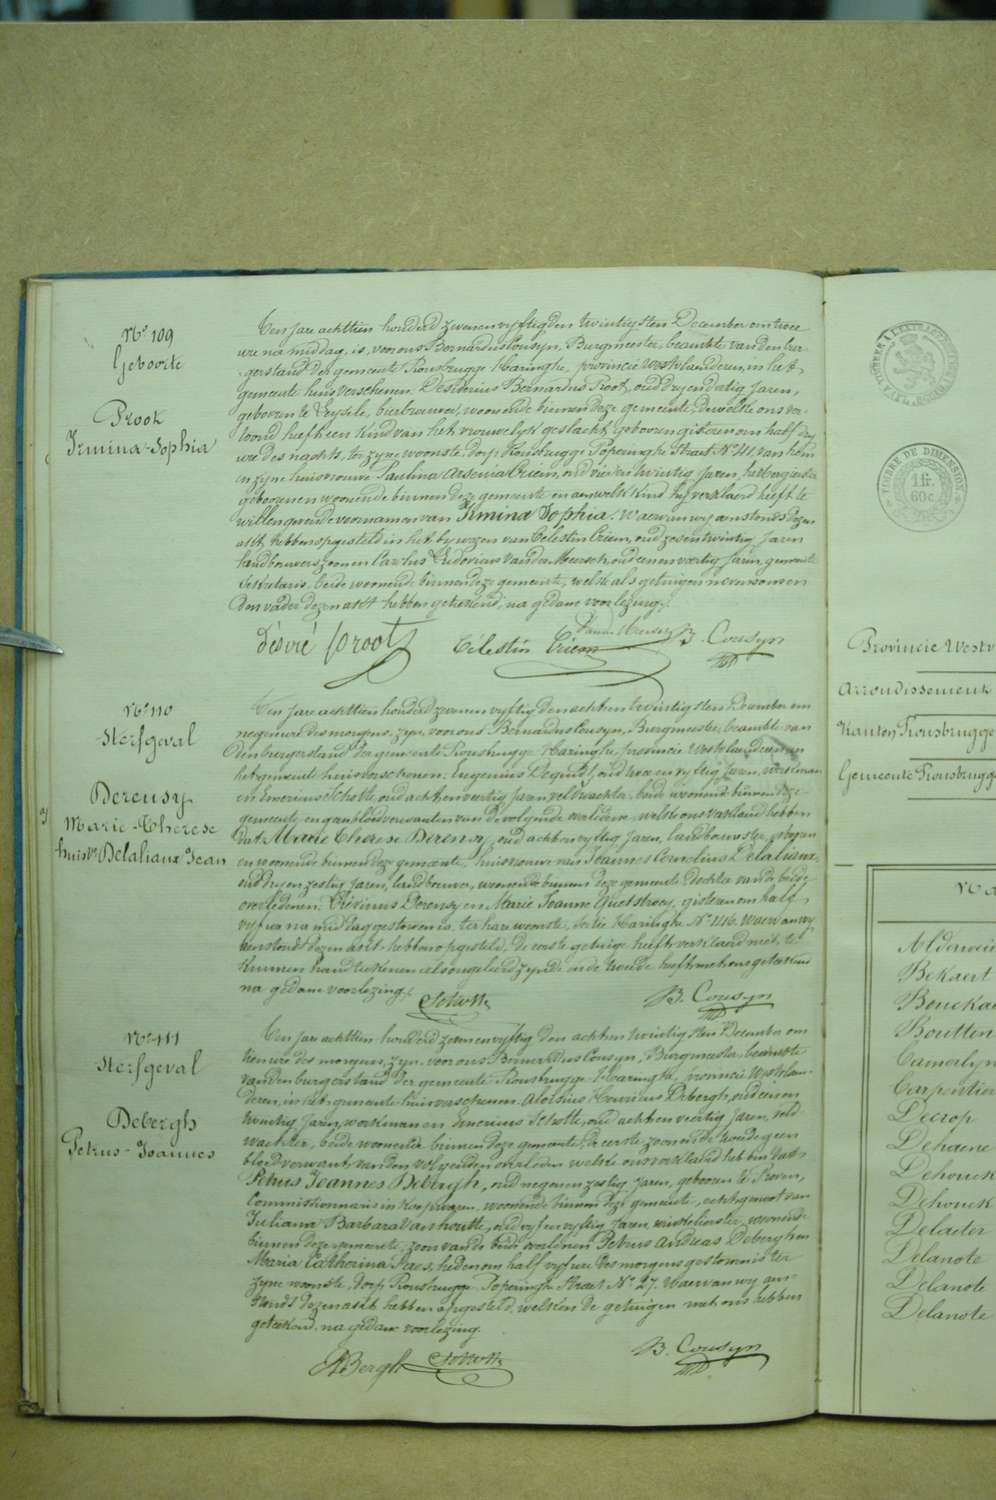 N° 109
Geboorte
Proot
Irmina-Sophia
Ten jare achttien honderd zevenenvyftig den twintigsten December om twee
ure na middag, is, voor ons Bernardus Cousyn, Burgmeester, beambte van den bur-
gerstand der gemeente Rousbrugge-Haringhe, provincie Westvlaenderen, in het
gemeente huis verschenen Desiderius Bernardus Proot, oud dryendertig jaren,
geboren te Leysele, bierbrouwer, woonende binnen deze gemeente, dewelke ons ver-
toond heeft een kind van het vrouwelyk geslacht, geboren gisteren om half dry
ure des nachts, ter zyne woonste, dorp Rousbrugge Poperinghe Straet N° 41, van hem
en zyne huisvrouwe Paulina Arsenia Criem, oud vierentwintig jaren, herbergierster
geboren en woonende binnen deze gemeente en aen welk kind hy verklaerd heeft te
willen geven de voornamen van Irmina Sophia. Waervan wy aenstonds dezen
akt hebben opgesteld in het bywezen van Celestin Criem, oud zesentwintig jaren
landbouwerszoon en Carolus Ludovicus Vandermeersch, oud eenenveertig jaren, gemeente
Sekretaris, beide woonende binnen deze gemeente, welke als getuigen nevens ons en
den vader dezen akt hebben geteekend, na gedane voorlezing.
Désiré Proot Célestin Criem Vandermeersch B. Cousyn
N° 110
Sterfgeval
Dereusy
Marie-Therese
huisv. Delaliaux Jean
Ten jare achttien honderd zevenenvyftig den achtentwintigsten December om
negen ure des morgens, zyn, voor ons Bernardus Cousyn, Burgmeester, beambte van
den burgerstand der gemeente Rousbrugge-Haringhe, provincie Westvlaenderen, in
het gemeente huis verschenen: Eugenius Degindt, oud tweeenvyftig jaren, werkman
en Emerius Schotte, oud achtenveertig jaren, veldwachter, beide woonende binnen deze
gemeente, en gaen bloedverwanten van de volgende overledene, welke ons verklaerd hebben
dat Marie Therese Dereusy, oud achtenvyftig jaren, landbouwster, geboren
en woonende binnen deze gemeente, huisvrouwe van Joannes Cornelius Delaliaux,
oud dryenzestig jaren, landbouwer, woonende binnen deze gemeente, dochter van de beide
overledenen: Livinus Dereusy en Marie Joanne Quetstroey, gisteren om half
vyf ure na middag gestorven is, ter hare woonste, sectie Haringhe N° 416. Waervan wy
aenstonds dezen akt hebben opgesteld, de eerste getuige heeft verklaerd niet te
kunnen handteekenen als ongeleerd zynde, en de tweede heeft met ons geteekend
na gedane voorlezing.
Schotte B. Cousyn
N° 111
Sterfgeval
Debergh
Petrus-Joannes
Ten jare achttien honderd zevenenvyftig den achtentwintigsten December om
tien ure des morgens, zyn, voor ons Bernardus Cousyn, Burgmeester, beambte
van den burgerstand der gemeente Rousbrugge-Haringhe, provincie Westvlaen-
deren, in het gemeente huis verschenen Aloisius Debergh, oud eenen
twintig jaren, werkman en Emerius Schotte, oud achtenveertig jaren, veld
wachter, beide woonende binnen deze gemeente, de eerste zoon en de tweede geen
bloedverwant van den volgenden overleden, welke ons verklaerd hebben dat
Petrus Joannes Debergh, oud negenenzestig jaren, geboren te Proven,
Commissionnaris in koopwaren, woonende binnen deze gemeente, echtgenoot van
Juliana Barbara Vanhoutte, oud vyfenvyftig jaren, winkelierster, woonende
binnen deze gemeente, zoon van de beide overledenen Petrus Andreas Debergh en
Maria Catherina Paes, heden om half vyf ure des morgens gestorven is ter
zyne woonste, dorp Rousbrugge, Poperinghe Straet N° 27. Waervan wy aen-
stonds dezen akt hebben opgesteld, welken de getuigen met ons hebben
geteekend, na gedane voorlezing.
ABergh Schotte B. Cousyn
TIMBRE DE DIMENSION
1 fr.
60 c.
Provincie Westv
Arrondissement
Kanton Rousbrugge
Gemeente Rousbrugge
Alderweir
Bekaert
Bouckae
Boutten
Camerlyn
Carpentier
Decrop
Dehaene
Dehouck
Dehouck
Delaeter
Delanote
Delanote
Delanote